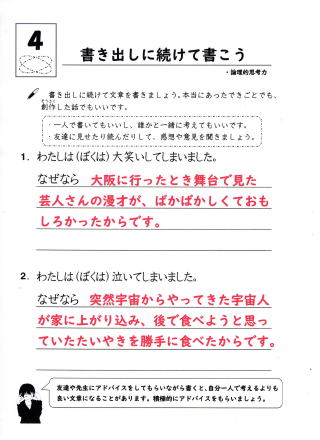 4
書き出しに続けて書こう
・論理的思考力
書き出しに続けて文章を書きましょう。本当にあったできごとでも、
そうさく
創作した話でもいいです。
・一人で書いてもいいし、誰かと一緒に考えてもいいです。
・友達に見せたり読んだりして、感想や意見を聞きましょう。
1. わたしは(ぼくは)大笑いしてしまいました。
なぜなら 大阪に行ったとき舞台で見た
芸人さんの漫才が、ばかばかしくておも
しろかったからです。
2. わたしは(ぼくは)泣いてしまいました。
なぜなら 突然宇宙からやってきた宇宙人
が家に上がり込み、後で食べようと思っ
ていたたいやきを勝手に食べたからです。
友達や先生にアドバイスをしてもらいながら書くと、自分一人で考えるよりも
良い文章になることがあります。積極的にアドバイスをもらいましょう。